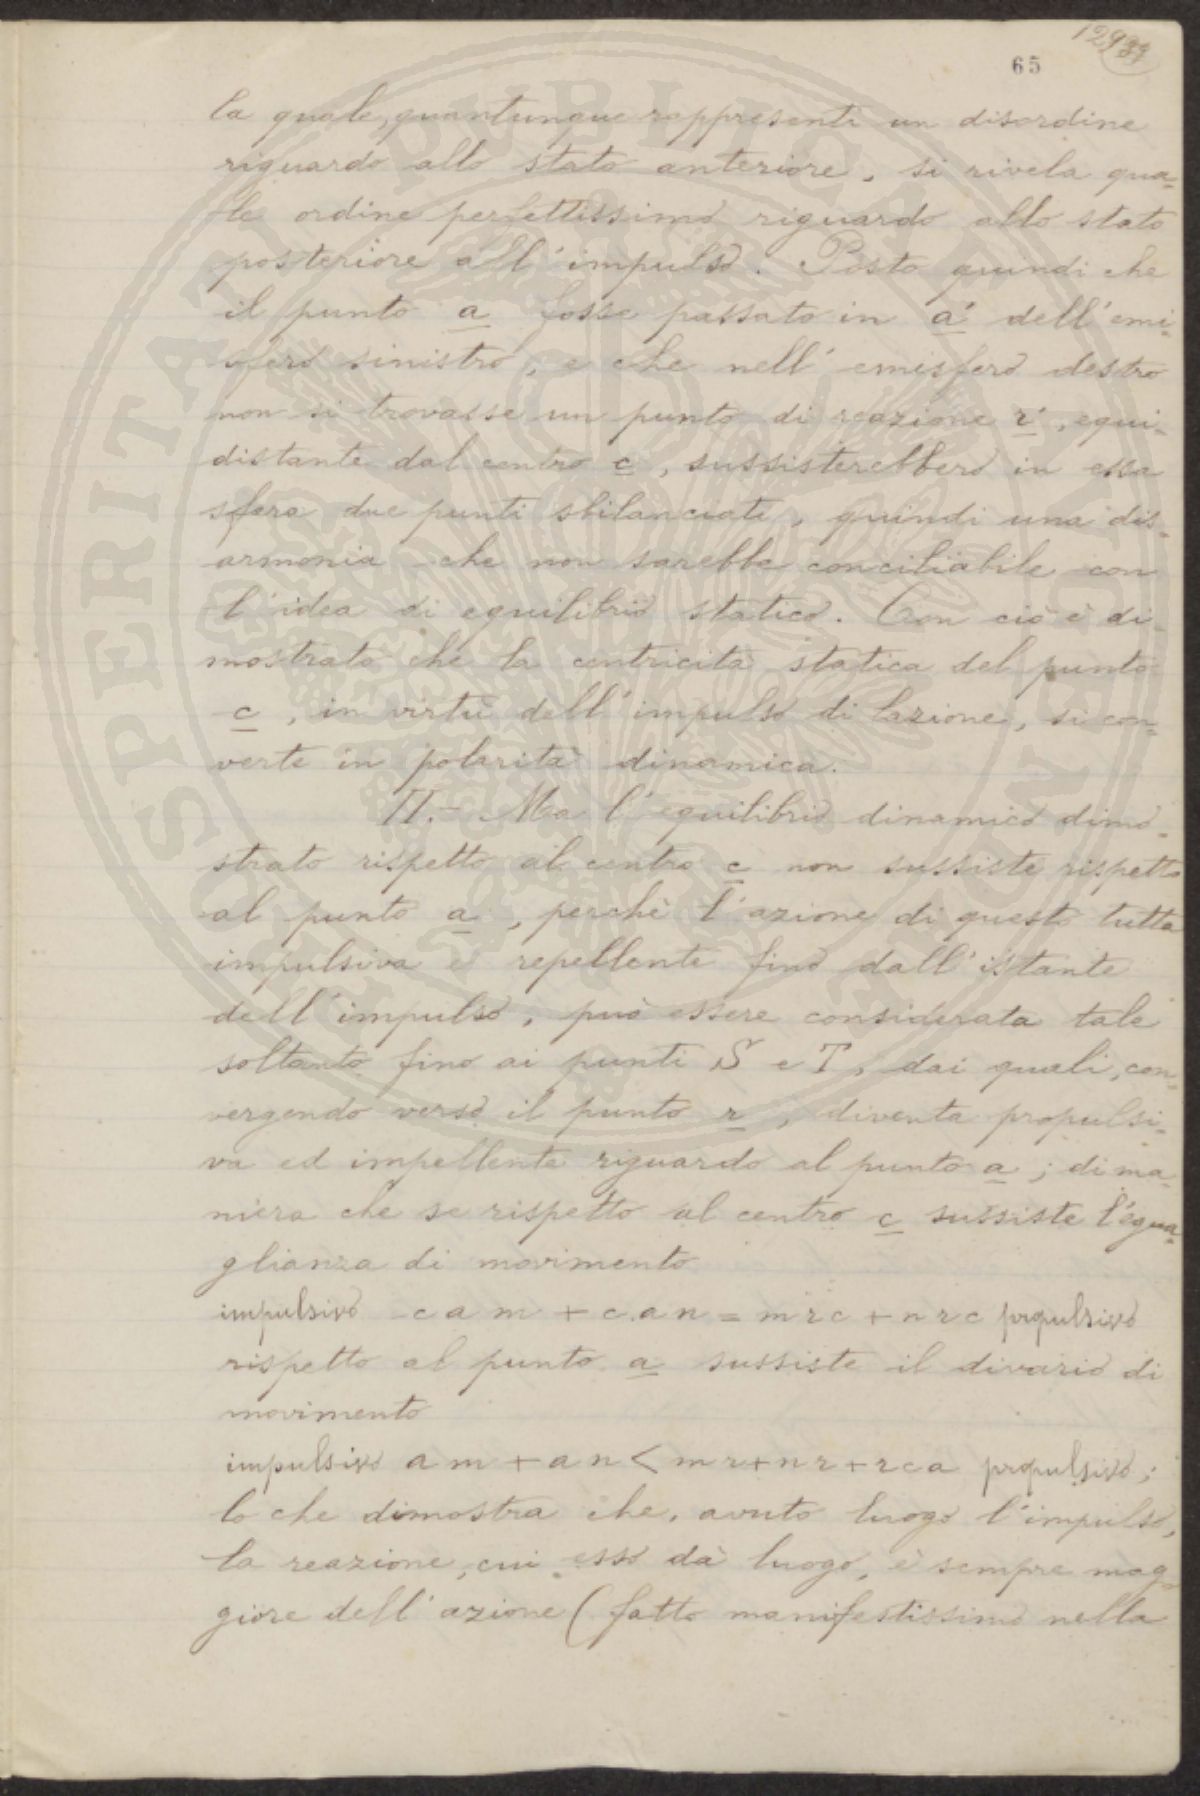 65
la quale, quantunque rappresenti un disordine
riguardo allo stato anteriore, si rivela qua-
le ordine perfettissimo riguardo allo stato
posteriore all'impulso. Posto quindi che
il punto a fosse passato in a' dell'emi-
sfero sinistro, e che nell'emisfero destro
non si trovasse un punto di reazione r', equi-
distante dal centro c, sussisterebbero in essa
sfera due punti sbilanciati, quindi una dis-
armonia che non sarebbe conciliabile con
l'idea di equilibrio statico. Con ciò è di-
mostrato che la centricità statica del punto
c, in virtù dell'impulso di lazione, si con-
verte in polarità dinamica.
II.- Ma l'equilibrio dinamico dimo-
strato rispetto al centro c non sussiste rispetto
al punto a, perchè l'azione di questo tutta
impulsiva e repellente fino dall'istante
dell'impulso, può essere considerata tale
soltanto fino ai punti S e T, dai quali, con-
vergendo verso il punto r, diventa propulsi-
va ed impellente riguardo al punto a; di ma-
niera che se rispetto al centro c sussiste l'egua-
glianza di movimento
impulsivo c a m + c a n = m r c + n r c propulsivo
rispetto al punto a sussiste il divario di
movimento
impulsivo a m + a n < m r + n r + r c a propulsivo;
lo che dimostra che, avuto luogo l'impulso,
la reazione, cui esso dà luogo, è sempre mag-
giore dell'azione (fatto manifestissimo nella
PROSPERITATI PUBLICAE AUGENDAE